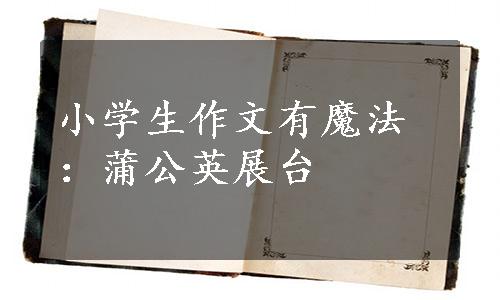 小学生作文有魔法
：蒲公英展台